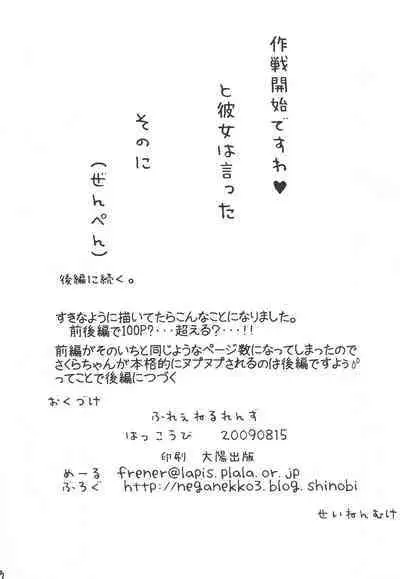 作戦開始ですわ♥
と彼女は言った
そのに
(ぜんぺん)
後編に続く。
すきなように描いてたらこんなことになりました。
前後編で100P?・・・超える?・・・!!
前編がそのいちと同じようなページ数になってしまったので
さくらちゃんが本格的にヌプヌプされるのは後編ですようが
ってことで後編につづく
おくづけ
ふれぇねるれんす
はっこうび 20090815
印刷 大陽出版
めーる frener@lapis.plala.or.jp
ぶろぐ http://neganekko3.blog.shinobi
せいねんむけ